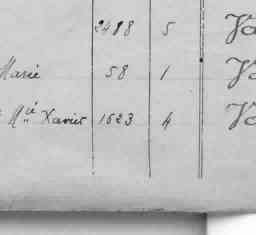 2488 5 Va
Marie 58 1 Va
Mie Xavier 1623 4 Va